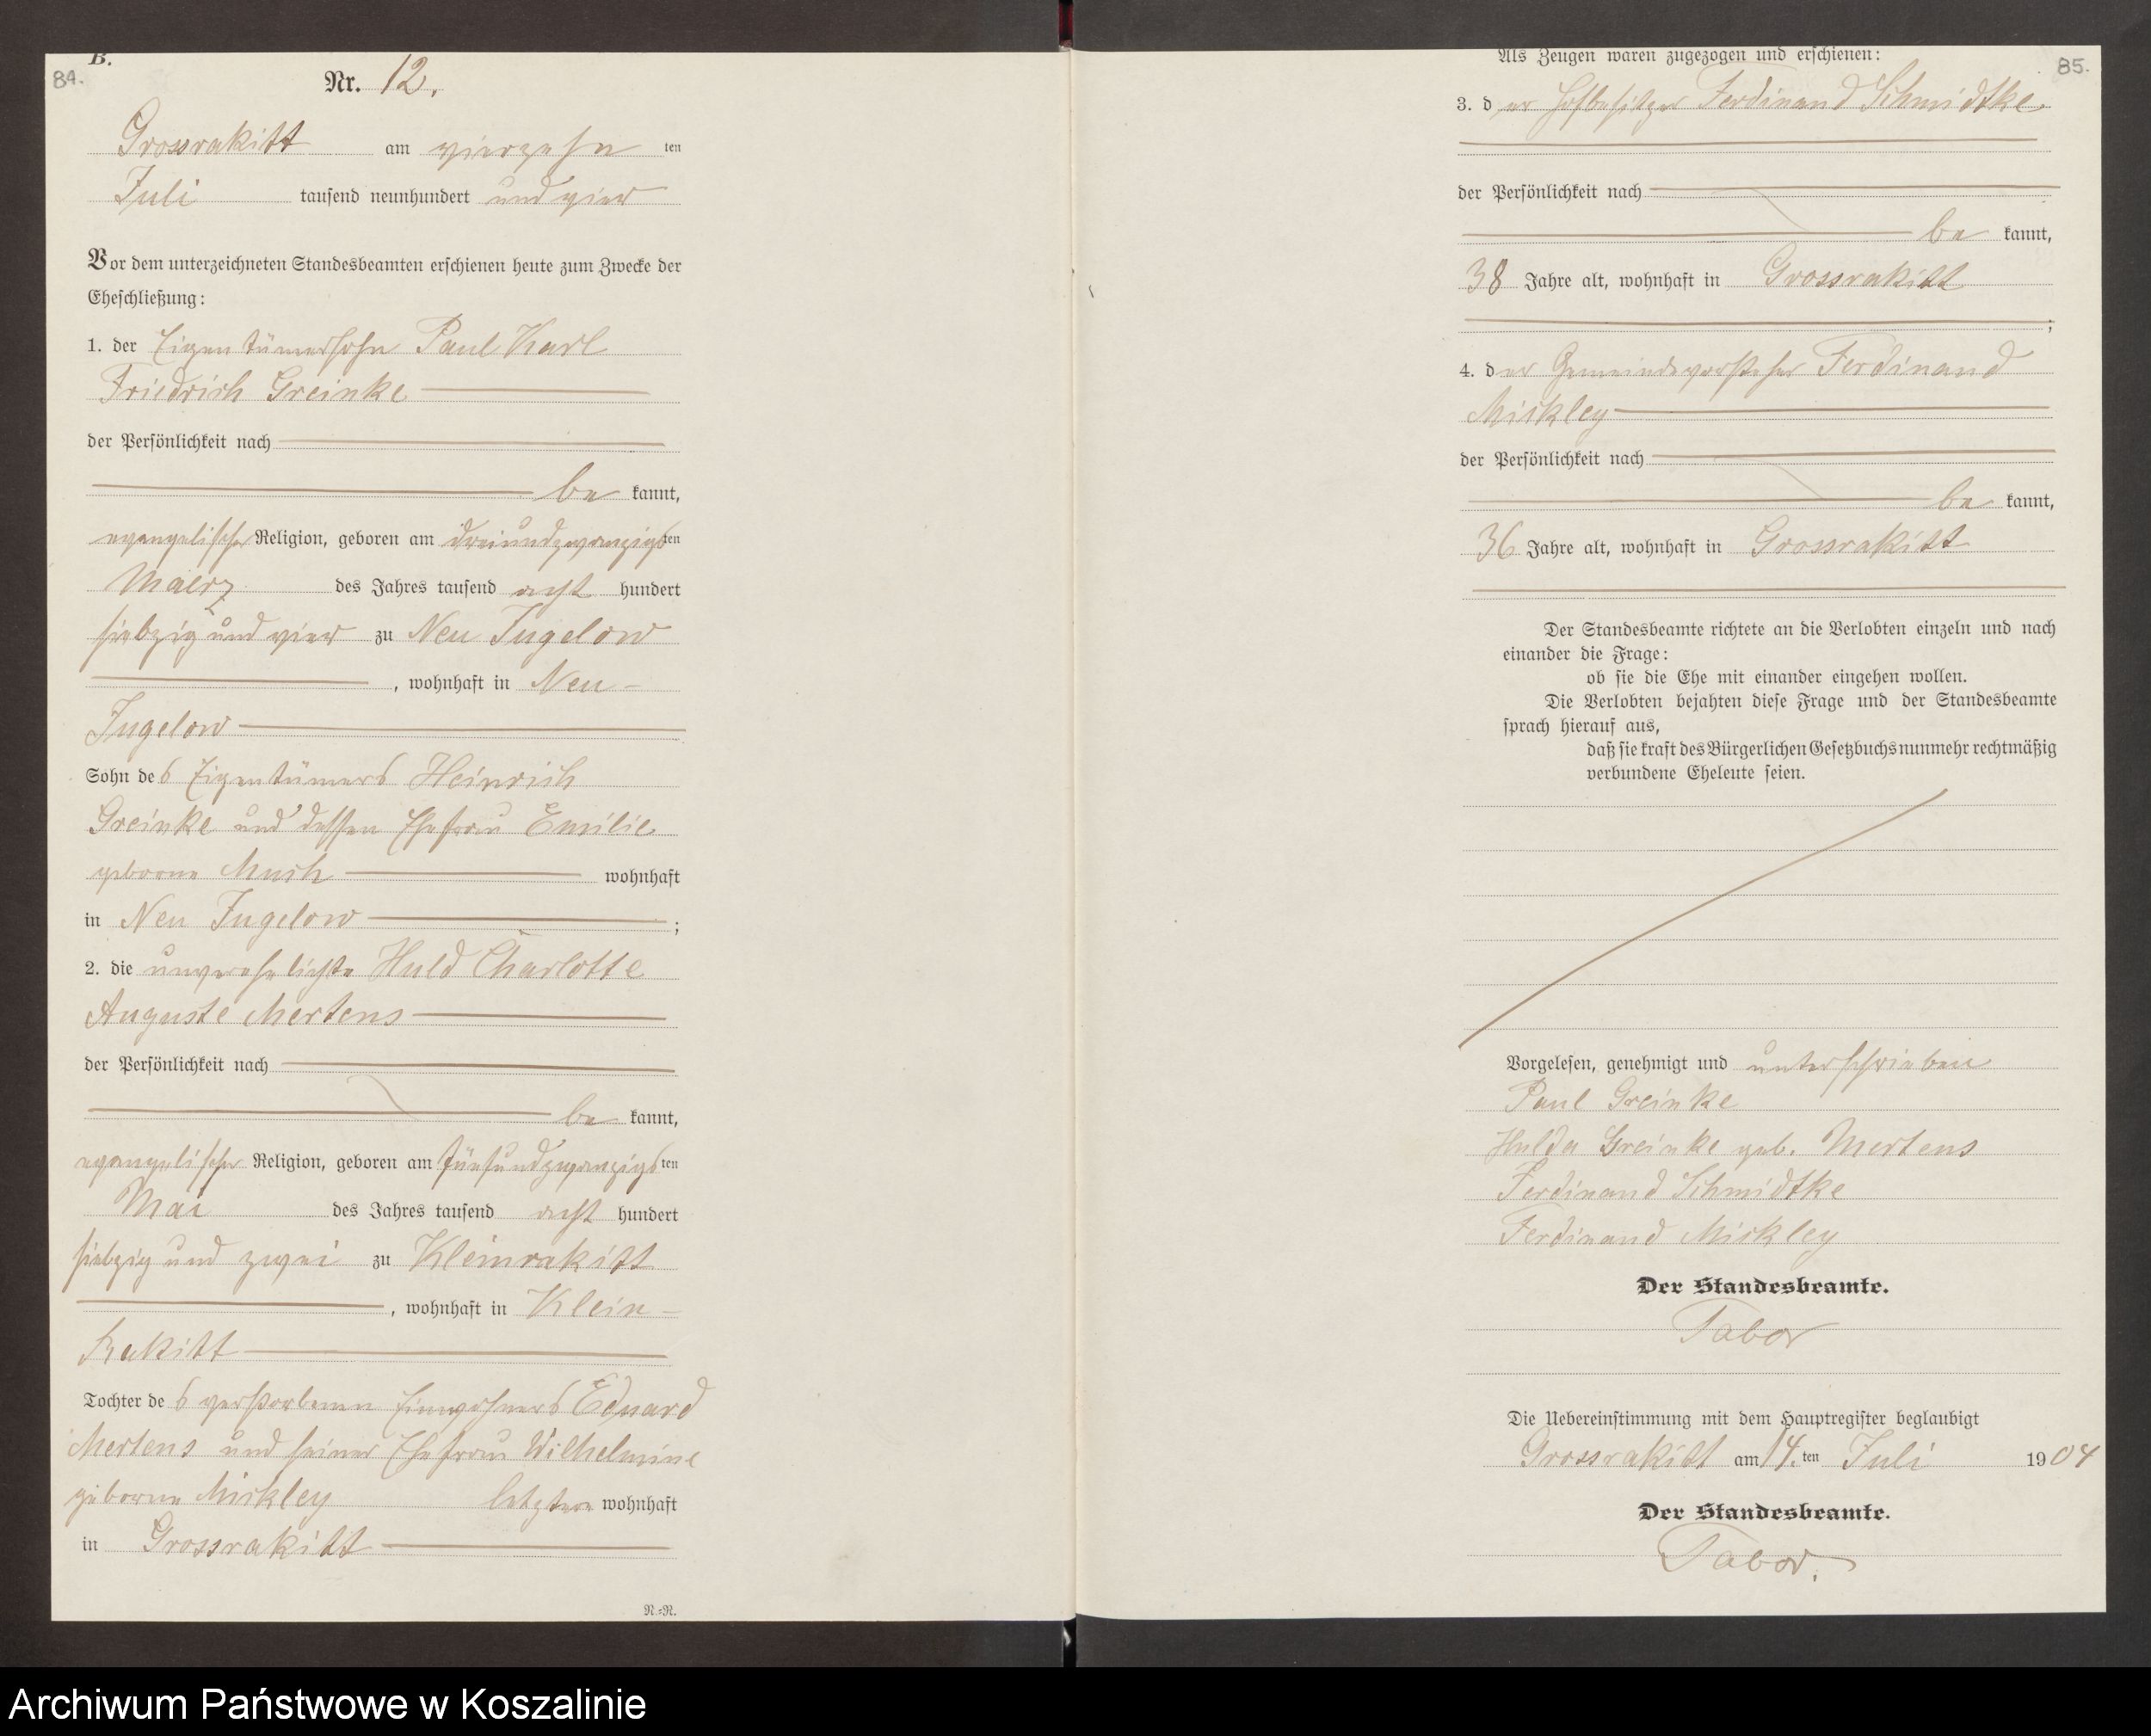 B.
84.
Nr. 12.
Grossrakitt am vierzehn ten
Juli tausend neunhundert und vier
Vor dem unterzeichneten Standesbeamten erschienen heute zum Zwecke der
Eheschließung:
1. der Eigentümersohn Paul Karl
Friedrich Greinke
der Persönlichkeit nach
be kannt,
evangelischer Religion, geboren am dreiundzwanzigsten
Maerz des Jahres tausend acht hundert
siebzig und vier zu Neu Jugelow
, wohnhaft in Neu-
Jugelow
Sohn des Eigentümers Heinrich
Greinke und dessen Ehefrau Emilie
geborne Much wohnhaft
in Neu Jugelow ;
2. die unverehelichte Huld Charlotte
Auguste Mertens
der Persönlichkeit nach
be kannt,
evangelischer Religion, geboren am fünfundzwanzigsten
Mai des Jahres tausend acht hundert
siebzig und zwei zu Kleinrakitt
, wohnhaft in Klein-
Rakitt
Tochter des verstorbenen Einwohners Eduard
Mertens und seiner Ehefrau Wilhelmine
geborne Mickley letztere wohnhaft
in Grossrakitt
N.=N.
Als Zeugen waren zugezogen und erschienen:
85.
3. der Hofbesitzer Ferdinand Schmidtke
der Persönlichkeit nach
be kannt,
38 Jahre alt, wohnhaft in Grossrakitt
;
4. der Gemeindevorsteher Ferdinand
Mickley
der Persönlichkeit nach
be kannt,
36 Jahre alt, wohnhaft in Grossrakitt
Der Standesbeamte richtete an die Verlobten einzeln und nach
einander die Frage:
ob sie die Ehe mit einander eingehen wollen.
Die Verlobten bejahten diese Frage und der Standesbeamte
sprach hierauf aus,
daß sie kraft des Bürgerlichen Gesetzbuchs nunmehr rechtmäßig
verbundene Eheleute seien.
Vorgelesen, genehmigt und unterschrieben
Paul Greinke
Hulda Greinke geb. Mertens
Ferdinand Schmidtke
Ferdinand Mickley
Der Standesbeamte.
Tabor
Die Uebereinstimmung mit dem Hauptregister beglaubigt
Grossrakitt am 14. ten Juli 1904
Der Standesbeamte.
Tabor.
Archiwum Państwowe w Koszalinie